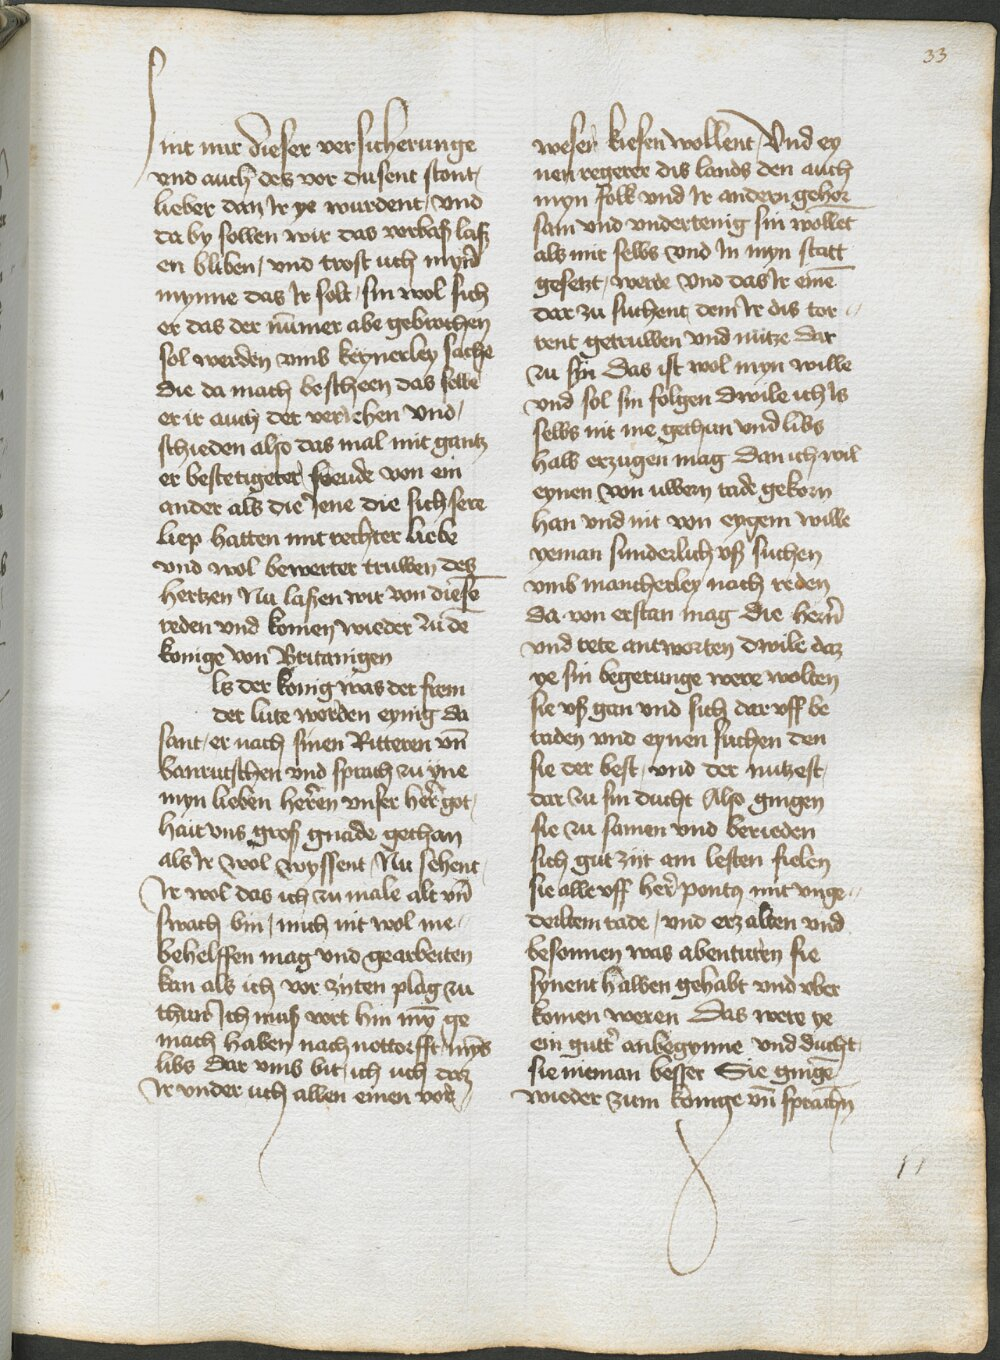 33
Init mir dieser versicherunge
vnd auch des vor dusent stont
lieber dan Ir ye wurdent / vnd
da by sollen wir das vorbaß laß
en bliben / vnd trost uch myn̄
mynne das Ir solt / sin wol sich
er das der nūmer abe gebrochen
sol werden vmb keynerley sache
die da mach bescheen das selbe
er ir auch der veriehen Vnd /
schieden also das mal mit gantz
er bestetigeter freude von ein
ander als die Jene die sich sere
liep hatten mit rechter liebe
vnd wol bewerter truwen des
hertzen Nu laßen wir von diese
reden vnd komen wieder zu de
konige von Britanigen
ls der konig was der frem
der lute worden eynig da
sant er nach sinen Ritteren vn̄
banrutschen vnd sprach zu yne
myn lieben herren vnser her got /
hait vns groß gnade gethan
als Ir wol wyssent / Nu sehent
Ir wol das ich zu male alt vn̄
swach bin / mich nit wol me
behelffen mag vnd gearbeiten
kan als ich vor zyten plag zu
thun Ich muß vort hin my̅ ge
mach haben nach nottorfft myns
libs Dar vmb bit ich uch daz
Ir vnder uch allen einen vor
weser kiesen wollent / Vnd ey
nen regerer dis lands den auch
myn folk vnd Ir andern gehor
sam vnd vndertenig sin wollet
als mir selbs vnd In myn statt
gesetzt / werde vnd das Ir eine̅
dar zu suchent dem Ir dis tor
rent getruwen vnd nütze dar
zu syn Das ist wol myn wille
vnd sol sin folgen dwile ich Is
selbs nit me gethun vnd libs
halb erzugen mag Dan ich wil
eynen von uwern rade gekorn
han vnd nit von eygem wille
yeman sunderlich vß suchen
vmb mancherley nach reden
da von erstan mag Die hern̄
vnd rete antworten dwile daz
ye sin begerunge were wolten
sie vß gan vnd sich dar vff be
raden vnd eynen suchen den
sie der best / vnd der nutzest /
dar zu sin ducht Also gingen
sie zu samen vnd berieden
sich gut zijt am lesten fielen
sie alle vff her pontus mit vnge
deiltem rade / vnd erzalten vnd
besonnen was abenturen sie
synent halben gehabt vnd vber
komen weren Das were ye
ein gutt anbegynne vnd ducht
sie nieman besser Sie ginge̅
wieder zum konige vn̄ sprachn